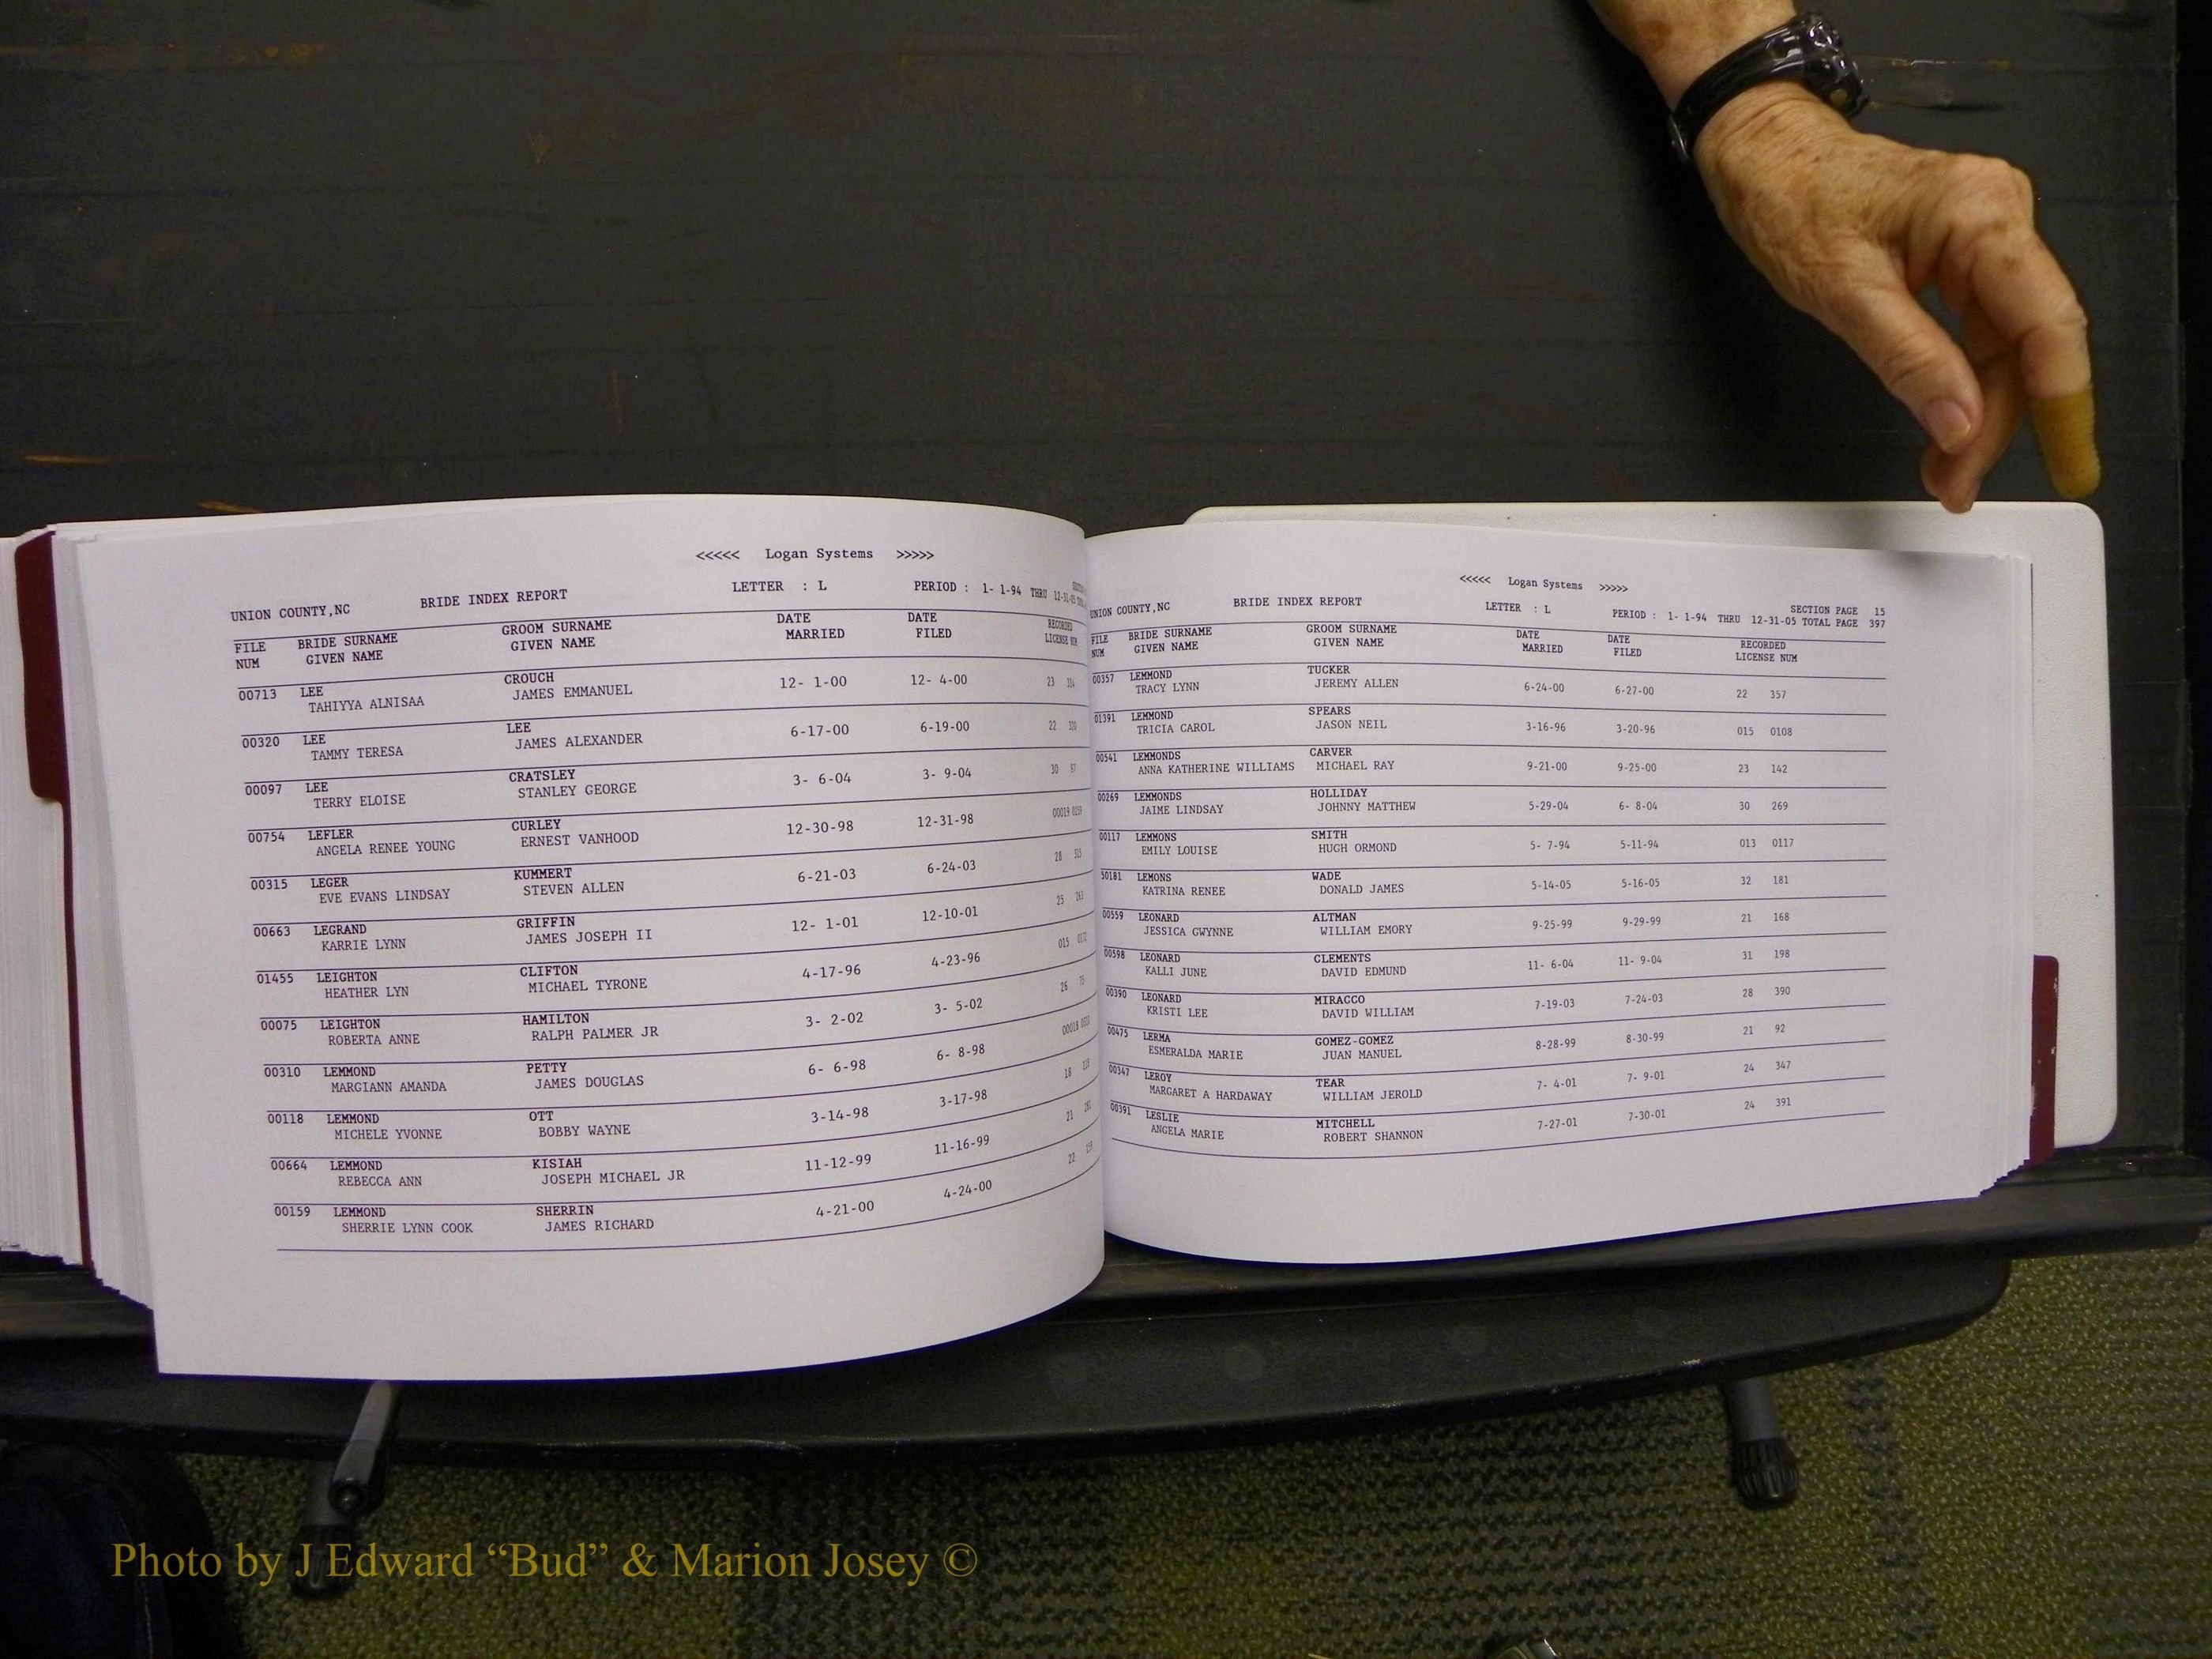 <<<<< Logan Systems >>>>>
UNION COUNTY,NC BRIDE INDEX REPORT LETTER : L PERIOD : 1- 1-94 THRU 12-31-05
FILE BRIDE SURNAME GROOM SURNAME DATE DATE RECORDED
NUM GIVEN NAME GIVEN NAME MARRIED FILED LICENSE NUM
00713 LEE CROUCH 12- 1-00 12- 4-00 23
TAHIYYA ALNISAA JAMES EMMANUEL
00320 LEE LEE 6-17-00 6-19-00 22
TAMMY TERESA JAMES ALEXANDER
00097 LEE CRATSLEY 3- 6-04 3- 9-04 30 97
TERRY ELOISE STANLEY GEORGE
00754 LEFLER CURLEY 12-30-98 12-31-98 00019
ANGELA RENEE YOUNG ERNEST VANHOOD
00315 LEGER KUMMERT 6-21-03 6-24-03 28 315
EVE EVANS LINDSAY STEVEN ALLEN
00663 LEGRAND GRIFFIN 12- 1-01 12-10-01 25
KARRIE LYNN JAMES JOSEPH II
01455 LEIGHTON CLIFTON 4-17-96 4-23-96 015
HEATHER LYN MICHAEL TYRONE
00075 LEIGHTON HAMILTON 3- 2-02 3- 5-02 26 75
ROBERTA ANNE RALPH PALMER JR
00310 LEMMOND PETTY 6- 6-98 6- 8-98 00018
MARGIANN AMANDA JAMES DOUGLAS
00118 LEMMOND OTT 3-14-98 3-17-98 18 118
MICHELE YVONNE BOBBY WAYNE
00664 LEMMOND KISIAH 11-12-99 11-16-99 21
REBECCA ANN JOSEPH MICHAEL JR
00159 LEMMOND SHERRIN 4-21-00 4-24-00 22 159
SHERRIE LYNN COOK JAMES RICHARD
<<<<< Logan Systems >>>>>
SECTION PAGE 15
UNION COUNTY,NC BRIDE INDEX REPORT LETTER : L PERIOD : 1- 1-94 THRU 12-31-05 TOTAL PAGE 397
FILE BRIDE SURNAME GROOM SURNAME DATE DATE RECORDED
NUM GIVEN NAME GIVEN NAME MARRIED FILED LICENSE NUM
00357 LEMMOND TUCKER 6-24-00 6-27-00 22 357
TRACY LYNN JEREMY ALLEN
01391 LEMMOND SPEARS 3-16-96 3-20-96 015 0108
TRICIA CAROL JASON NEIL
00541 LEMMONDS CARVER 9-21-00 9-25-00 23 142
ANNA KATHERINE WILLIAMS MICHAEL RAY
00269 LEMMONDS HOLLIDAY 5-29-04 6- 8-04 30 269
JAIME LINDSAY JOHNNY MATTHEW
00117 LEMMONS SMITH 5- 7-94 5-11-94 013 0117
EMILY LOUISE HUGH ORMOND
50181 LEMONS WADE 5-14-05 5-16-05 32 181
KATRINA RENEE DONALD JAMES
00559 LEONARD ALTMAN 9-25-99 9-29-99 21 168
JESSICA GWYNNE WILLIAM EMORY
00598 LEONARD CLEMENTS 11- 6-04 11- 9-04 31 198
KALLI JUNE DAVID EDMUND
00390 LEONARD MIRACCO 7-19-03 7-24-03 28 390
KRISTI LEE DAVID WILLIAM
00475 LERMA GOMEZ-GOMEZ 8-28-99 8-30-99 21 92
ESMERALDA MARIE JUAN MANUEL
00347 LEROY TEAR 7- 4-01 7- 9-01 24 347
MARGARET A HARDAWAY WILLIAM JEROLD
00391 LESLIE MITCHELL 7-27-01 7-30-01 24 391
ANGELA MARIE ROBERT SHANNON
Photo by J Edward “Bud” & Marion Josey ©